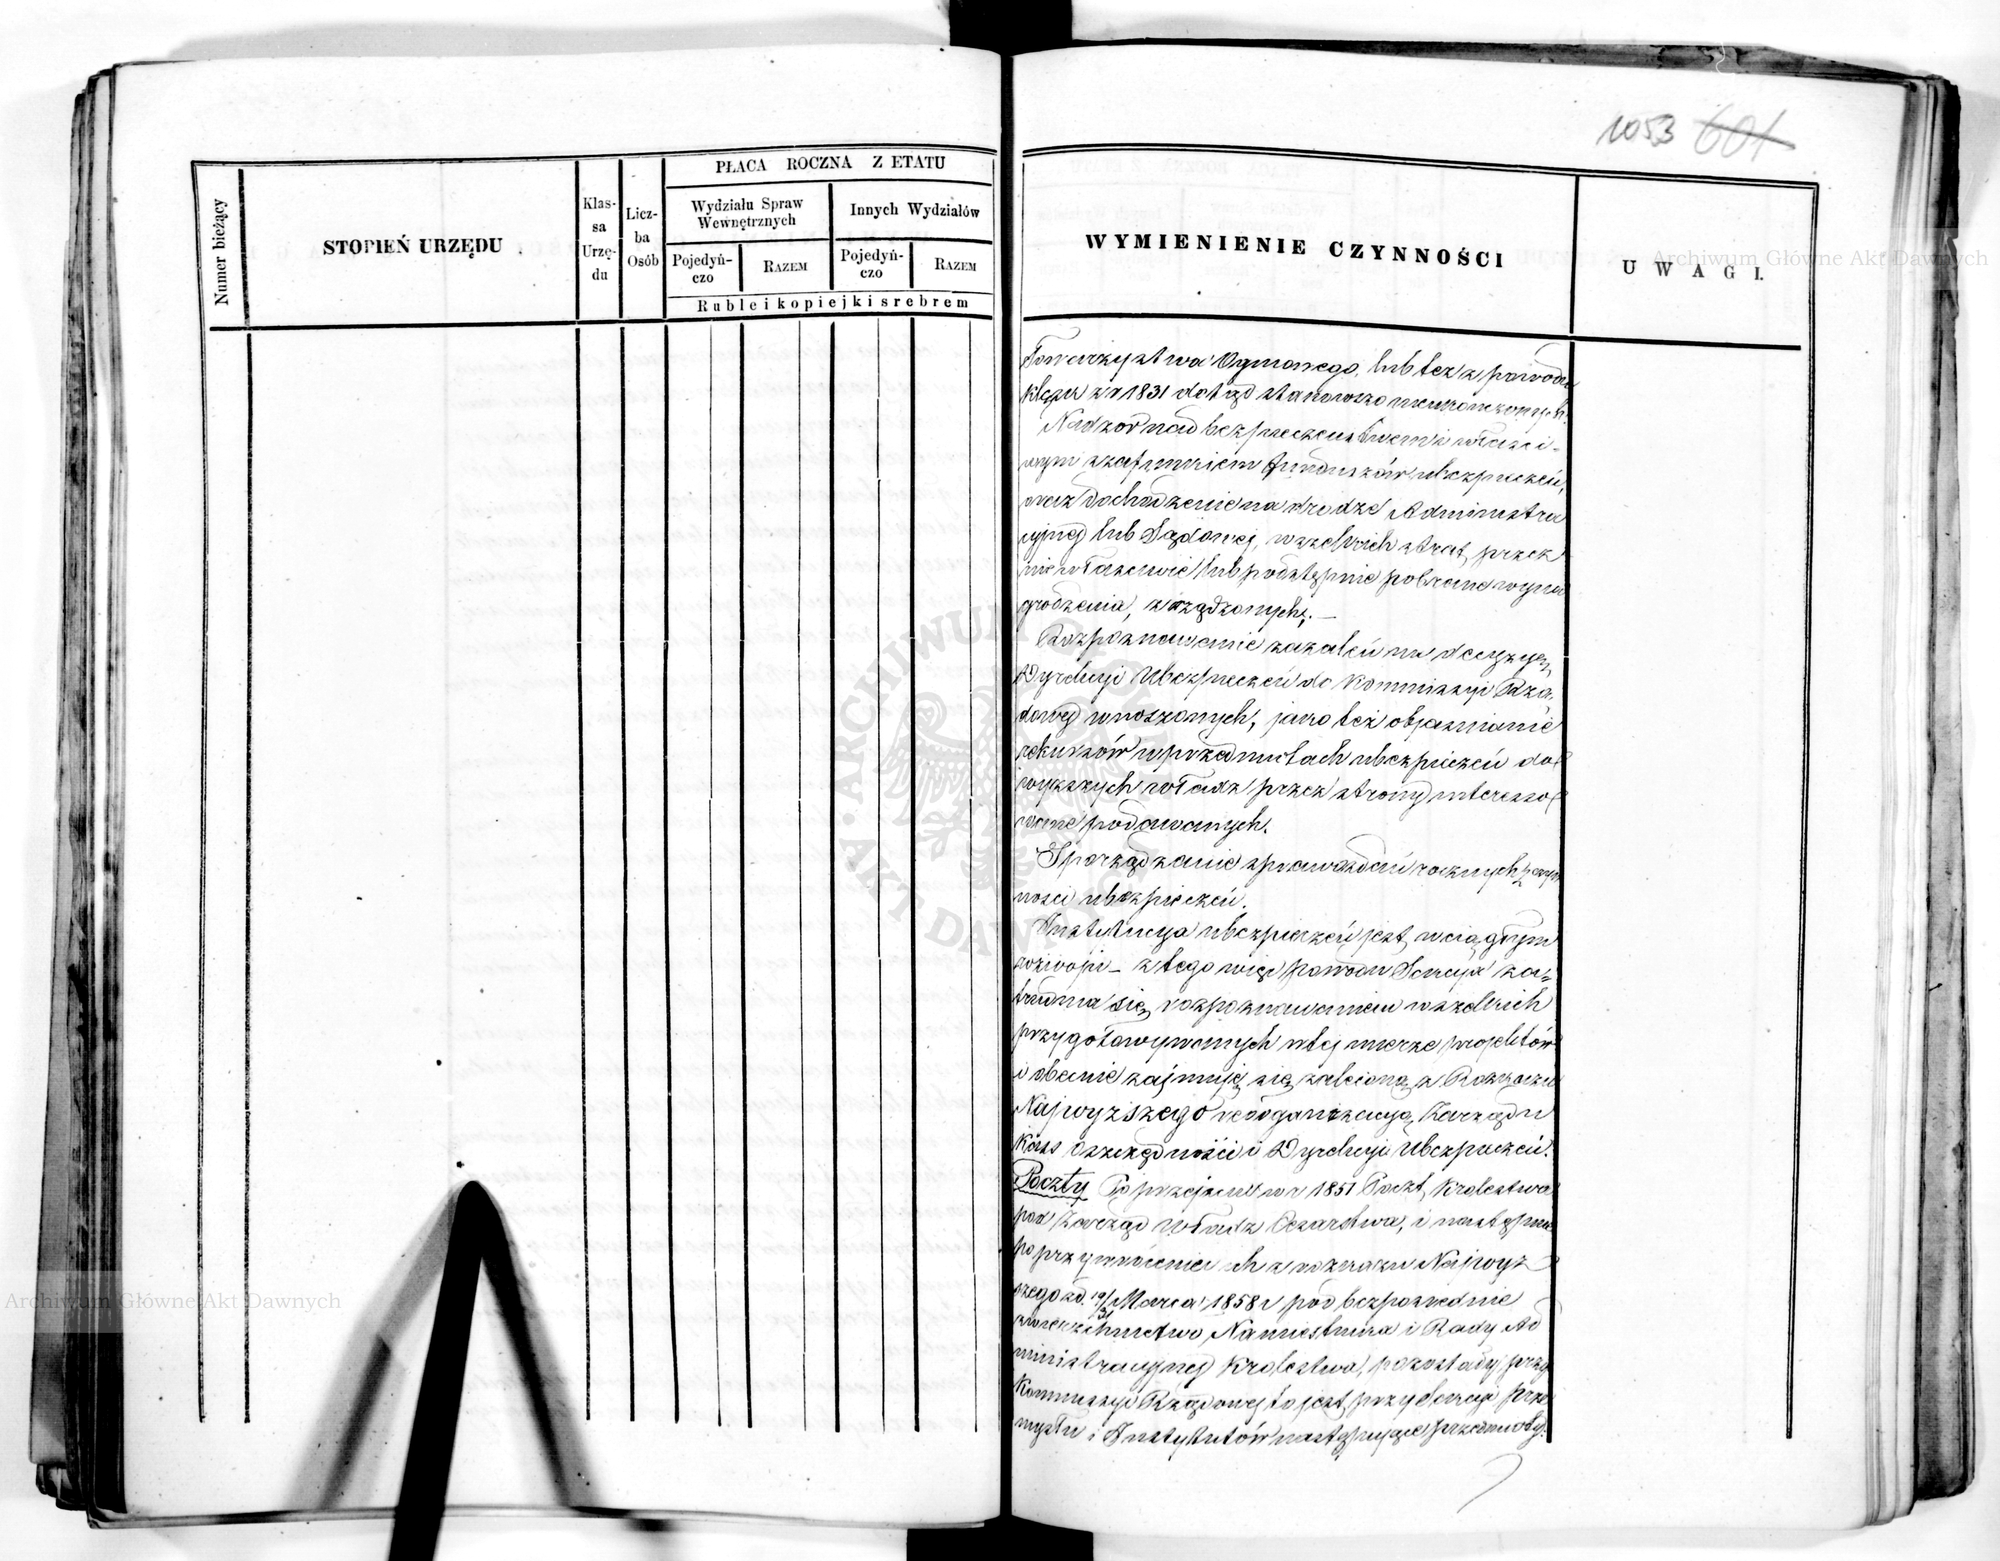 1053 601
Numer bieżący
STOPIEŃ URZĘDU
Klas-
sa
Urzę-
du
Licz-
ba
Osób
PŁACA ROCZNA Z ETATU
Wydziału Spraw
Wewnętrznych
Innych Wydziałów
Pojedyń-
czo
RAZEM
Pojedyń-
czo
RAZEM
Ruble i kopiejki srebrem
WYMIENIENIE CZYNNOŚCI
UWAGI.
Towarzystwa Ogniowego, lub też z powodu
klęsk z r 1831 dotąd stanowczo nieukończonych.
Nadzór nad bezpieczeństwem i właści-
wym szafunkiem funduszów ubezpieczeń,
oraz dochodzenie na drodze Administra
cyjnej lub Sądowej, wszelkich strat, przez
niewłaściwie lub podstępnie pobrane wyna
grodzenia, zrządzonych. —
Rozpoznawanie zażaleń na decyzye
Dyrekcyi Ubezpieczeń do Kommissyi Rzą-
dowej wnoszonych, jako też objaśnianie
rekursów w przedmiotach ubezpieczeń do
wyższych władz przez strony interesso
wane podawanych.
Sporządzanie sprawozdań rocznych z czyn
ności ubezpieczeń.
Instytucya ubezpieczeń jest w ciągłym
rozwoju — z tego więc powodu Sekcya za-
trudnia się rozpoznawaniem wszelkich
przygotowywanych w tej mierze projektów
i obecnie zajmuje się zaleconą z Rozkazu
Najwyższego reorganizacyą Zarządu
Kass Oszczędności i Dyrekcyi Ubezpieczeń.
Poczty Po przejściu w r 1851 Poczt Królestwa
pod Zarząd Władz Cesarstwa, i następnie
po przywróceniu ich z rozkazu Najwyż
szego zd. 19/31 Marca 1858 r pod bezpośrednie
zwierzchnictwo Namiestnika i Rady Ad
ministracyjnej Królestwa, pozostały przy
Kommissyi Rządowej to jest przy Sekcyi Prze
mysłu i Instytutów następujące przedmioty.
Archiwum Główne Akt Dawnych
Archiwum Główne Akt Dawnych